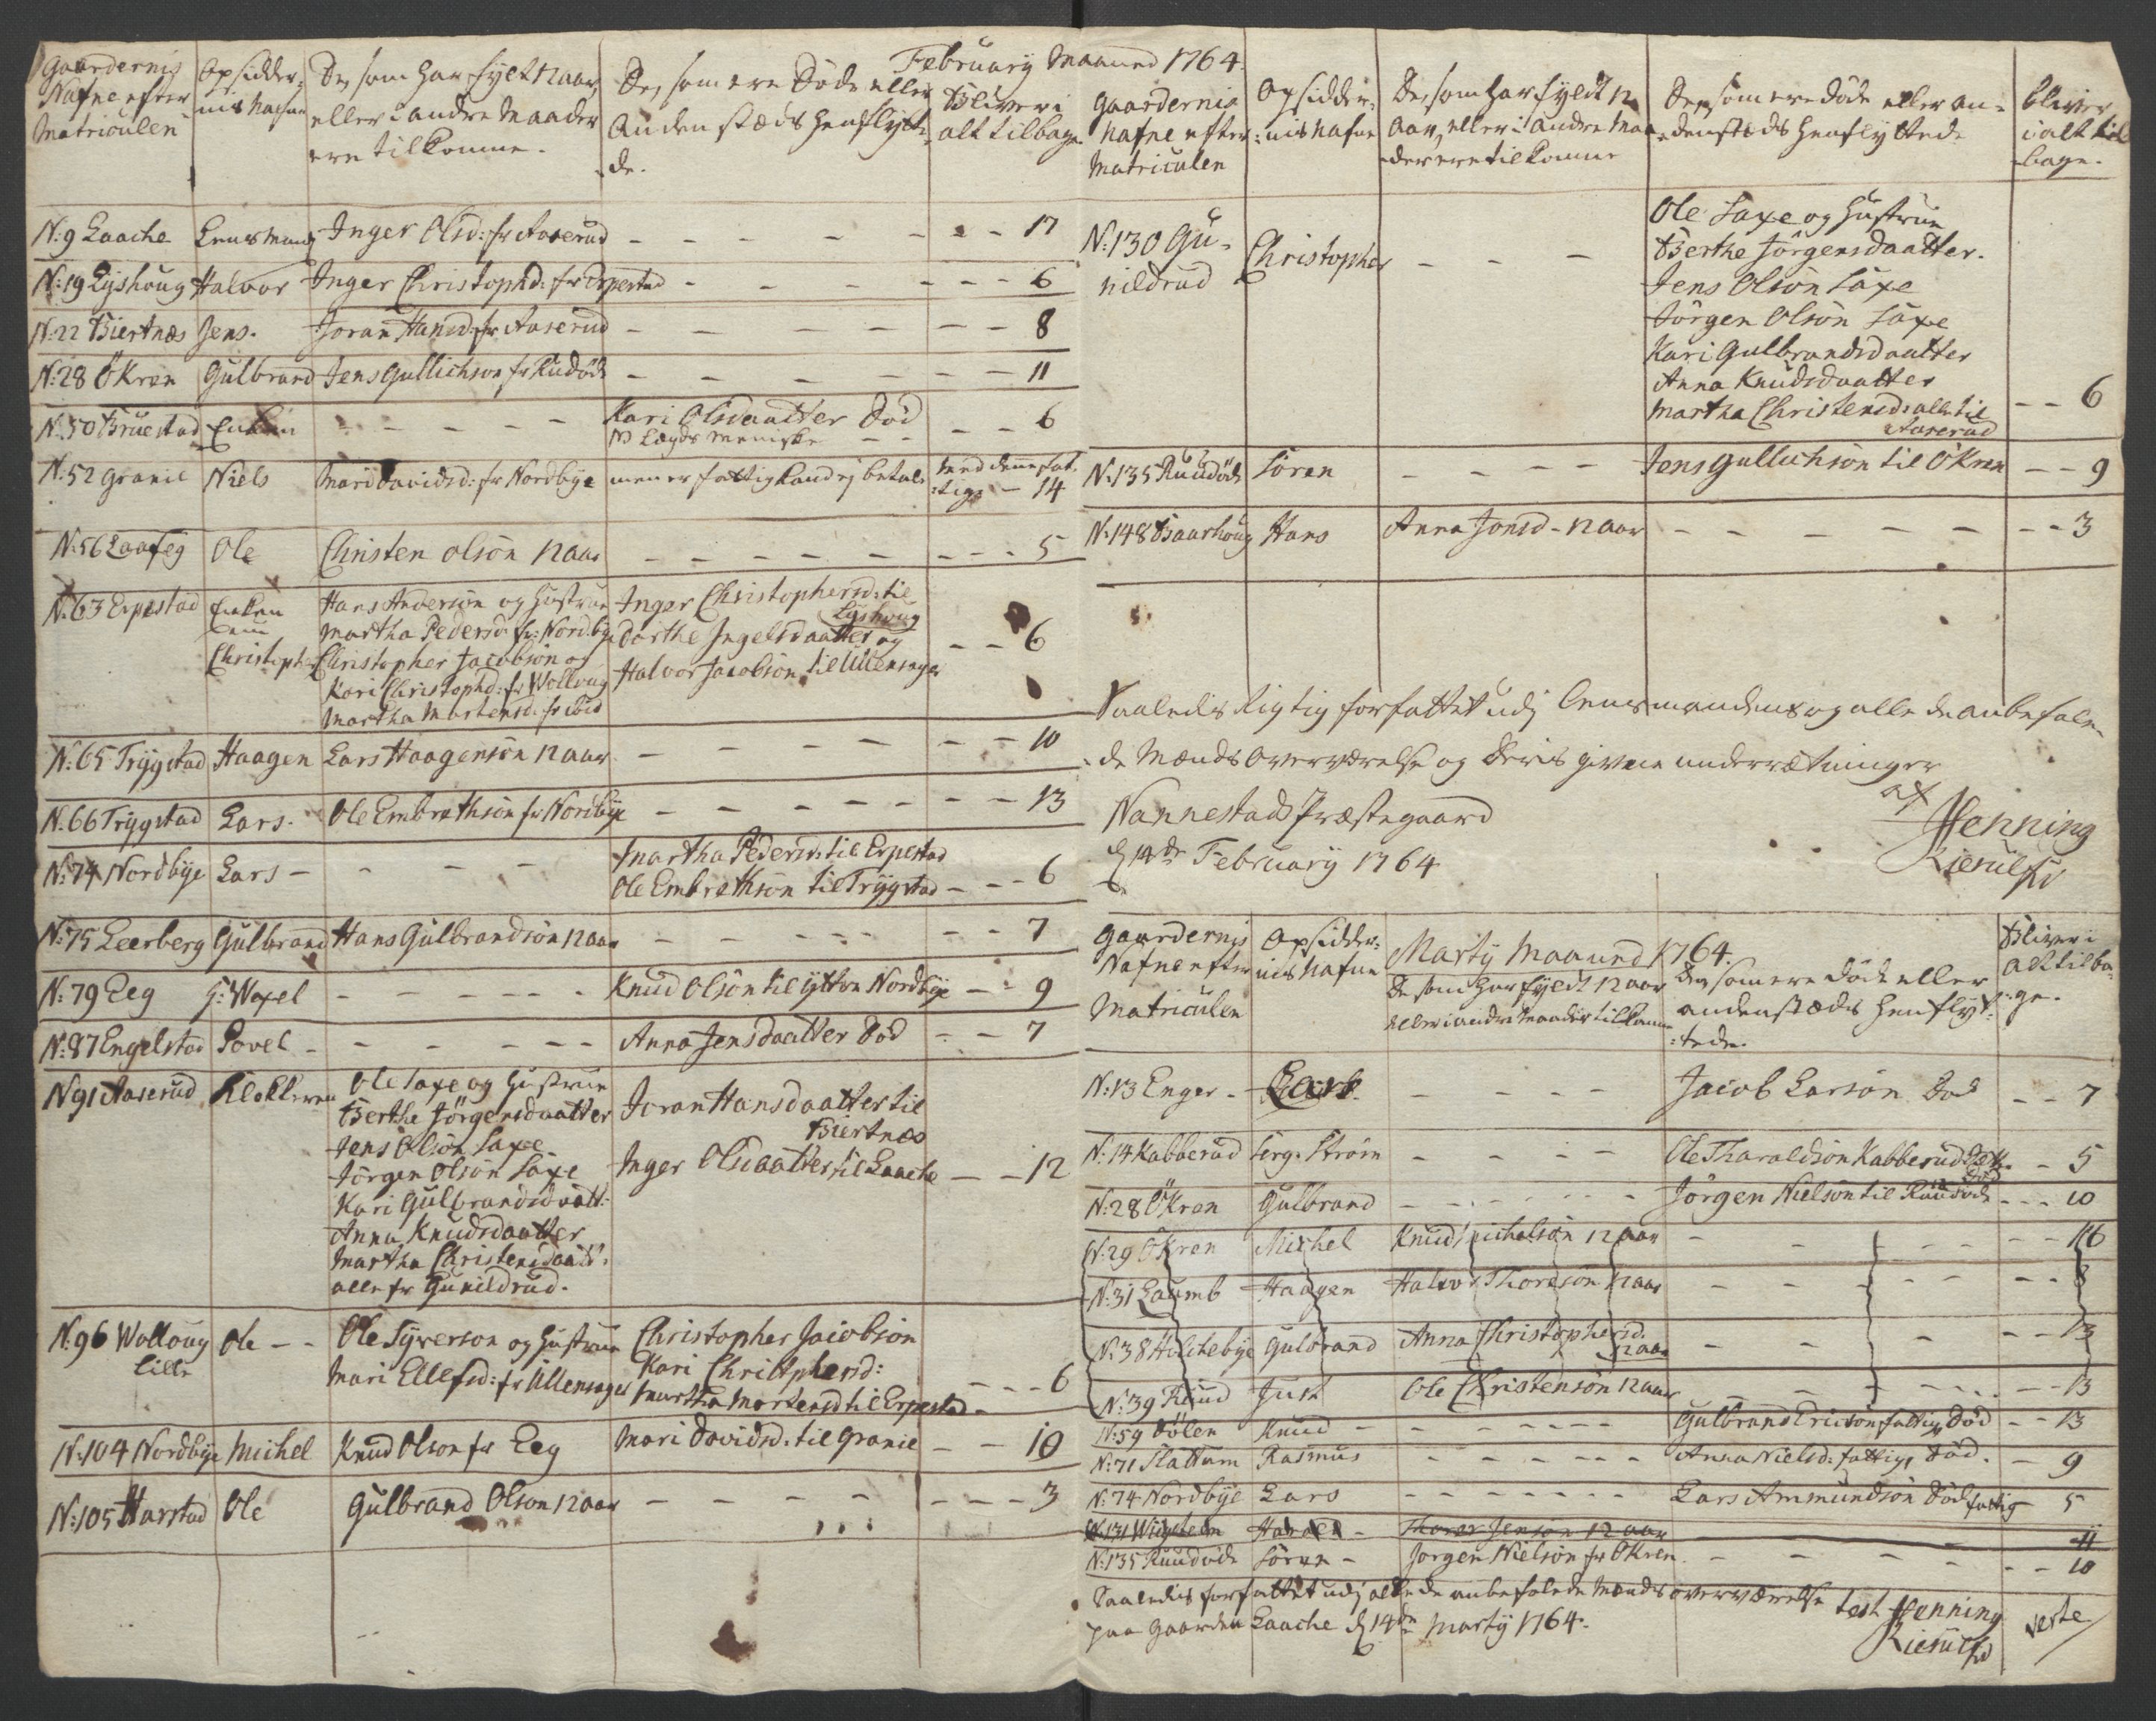 February Maaned 1764.
Gaardernis Nafne efter Matriculen | Opsidder-nis Nafne | De, som har fylt 12 aar, eller i andre Maader ere tilkomne. | De, som ere døde eller andenstæds henflytte-de. | Bliver i alt tilbage
N: 9 Laache | Lensmand | Inger Olsd: fr Aaserud | - | 17
N: 19 Lyshoug | Halvor | Inger Christophd: fr Erpestad | - | 6
N: 22 Biertnæs | Jens. | Joran Hansd: fr Aaserud | - | 8
N: 28 Økren | Gulbrand | Jens Gullichson fr Rudøde | - | 11
N: 50 Bruestad | Enken | - | Kari Olsdaatter død | 6
NB Lægds Meniske
N: 52 Granil | Niels | Mari Davidsd: fr Nordbye | men er fattig kand ej betale | med denne fat-tige - 14
N: 56 Laafeg | Ole | Christen Olsön 12 aar | - | 5
N: 63 Erpestad | Enken | Hans Andersön og Hustrue | Inger Christophersd: til Lyshoug
Martha Pedersd: fr: Nordbye | Dorthe Ingelsdaatter og | 6
Christopher | Christopher Jacobsön og | Halvor Jacobsön til Ullensager
Kari Christophd: fr Wolloug
Martha Mortensd: fr ibid
N: 65 Trygstad | Haagen | Lars Haagensön 12 aar | - | 10
N: 66 Trygstad | Lars. | Ole Embrethsön fr Nordbye | - | 13
N: 74 Nordbye | Lars - | - | Martha Pedersd: til Erpestad
Ole Embrethsön til Trygstad | 6
N: 75 Leerberg | Gulbrand | Hans Gulbrandsön 12 aar | - | 7
N: 79 Eeg | H: Woxel | - | Knud Olsön til ytten Nordbye | 9
N: 87 Engelstad | Povel | - | Anna Jensdaatter død | 7
N 91 Aaserud | Klokkeren | Ole Saxe og Hustrue | Joran Hansdaatter til Biertnæs
Berthe Jörgensdaatter
Jens Olsön Saxe
Jörgen Olsön Saxe | Inger Olsdaatter til Laache | 12
Kari Gulbrandsdaatt:
Anna Knudsdaatter
Martha Christensdaatt:
alle fr Gunildrud.
N: 96 Wolloug lille | Ole - - | Ole Syverson og Hustrue | Christopher Jacobsön
Mari Ellefsd: fr Ullensager | Kari Christphersd: | 6
Martha Mortensd til Erpestad
N: 104 Nordbye | Michel | Knud Olson fr Eeg | Mari Davidsd: til Granil | 10
N: 105 Harstad | Ole | Gulbrand Olson 12 aar | - | 3
Gaardernis Nafne efter Matriculen | Opsidder-nis Nafne | De, som har fyldt 12 aar, eller i andre Maa-der ere tilkomne | De, som ere døde eller an-denstæds henflyttede | bliver i alt til-bage.
N: 130 Gu-nildrud | Christopher | - - - | Ole Saxe og Hustrue
Berthe Jörgensdaatter.
Jens Olsön Saxe
Jörgen Olsön Saxe
Kari Gulbrandsdaatter
Anna Knudsdaatter
Martha Christensd: alle til Aaserud | 6
N: 135 Ruudøde | Sören | - - - - | Jens Gullichsön til Økren | 9
N: 148 Baarhoug | Hans | Anna Jonsd - 12 aar | - | 3
Saaledis Rigtig forfattet udj Lensmandens og alle de anbefale-
de Mænds Overværelse og deris givne underretninger
af
Nannestads Præstegaard
d 14de February 1764
Henning
Kierulf
Marty Maaned 1764.
Gaardernis Nafne efter Matriculen | Opsidder-nis Nafne | De som har fyldt 12 aar eller i andre Maader tilkomne | De, som ere døde eller andenstæds henflyt-tede. | Bliver i alt tilba-ge.
N: 13 Enger - | Lars | - - - - | Jacob Larsön død | 7
N: 14 Kabberud | Serg. Ström | - - - - | Ole Tharaldsön Kabberud død | 5
N: 28 Økren | Gulbrand | - | Jörgen Nielsön til Ruudøde | 10
N: 29 Økren | Michel | Knud Michelsön 12 aar | - | 16
N: 31 Laumb | Haagen | Halvor Thoresön 12 aar | - | 8
N: 38 Holtebye | Gulbrand | Anna Christophersd: 12 aar | - | 13
N: 39 | Just | Ole Christensön 12 aar | - | 13
N: 59 Dölen | Knud - | - | Gulbrand Ericsön fattig død | 13
N: 71 Slattum | Rasmus | - | Anna Nielsd: fattig, død. | 9
N: 74 Nordbye | Lars | - | Lars Ammundsön død fattig | 5
N: 131 Wigstein | | Thorer Jensön 12 aar | 11
N: 135 Ruudøde | Sören - | Jorgen Nielsön fr Økren | - | 10
Saaledis forfattet udj alle de anbefalede Mænds overværelse
paa Gaarden Laache d 14de Marty 1764.
test Henning
Kierulf
verte